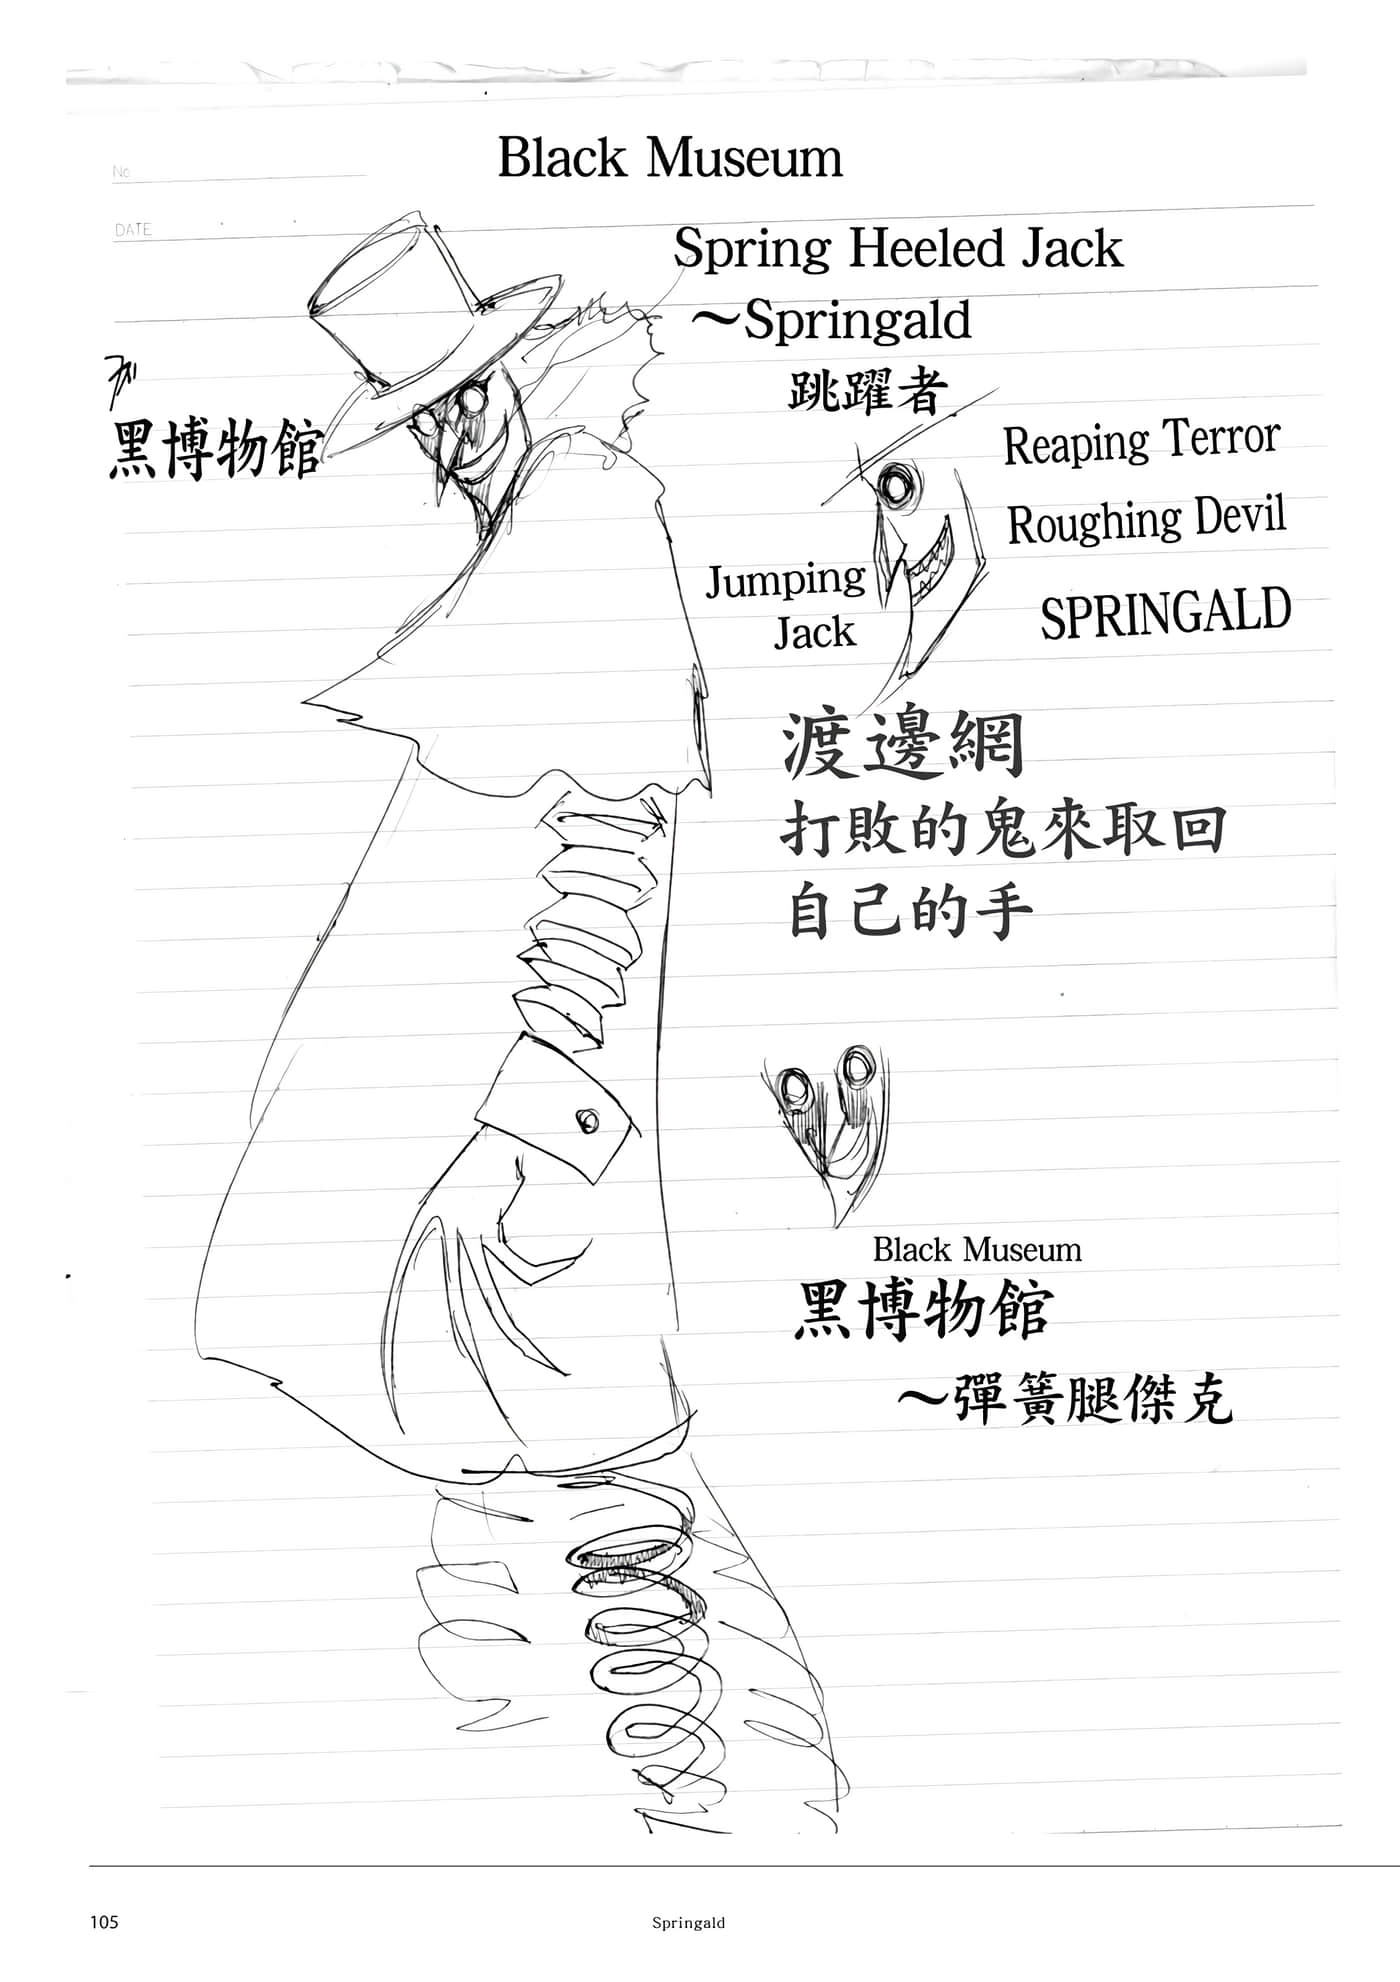 Black Museum
No
DATE
Spring Heeled Jack
～Springald
跳躍者
ザ
黑博物館
Reaping Terror
Roughing Devil
Jumping
Jack
SPRINGALD
渡邊網
打敗的鬼來取回
自己的手
Black Museum
黑博物館
～彈簧腿傑克
105
Springald